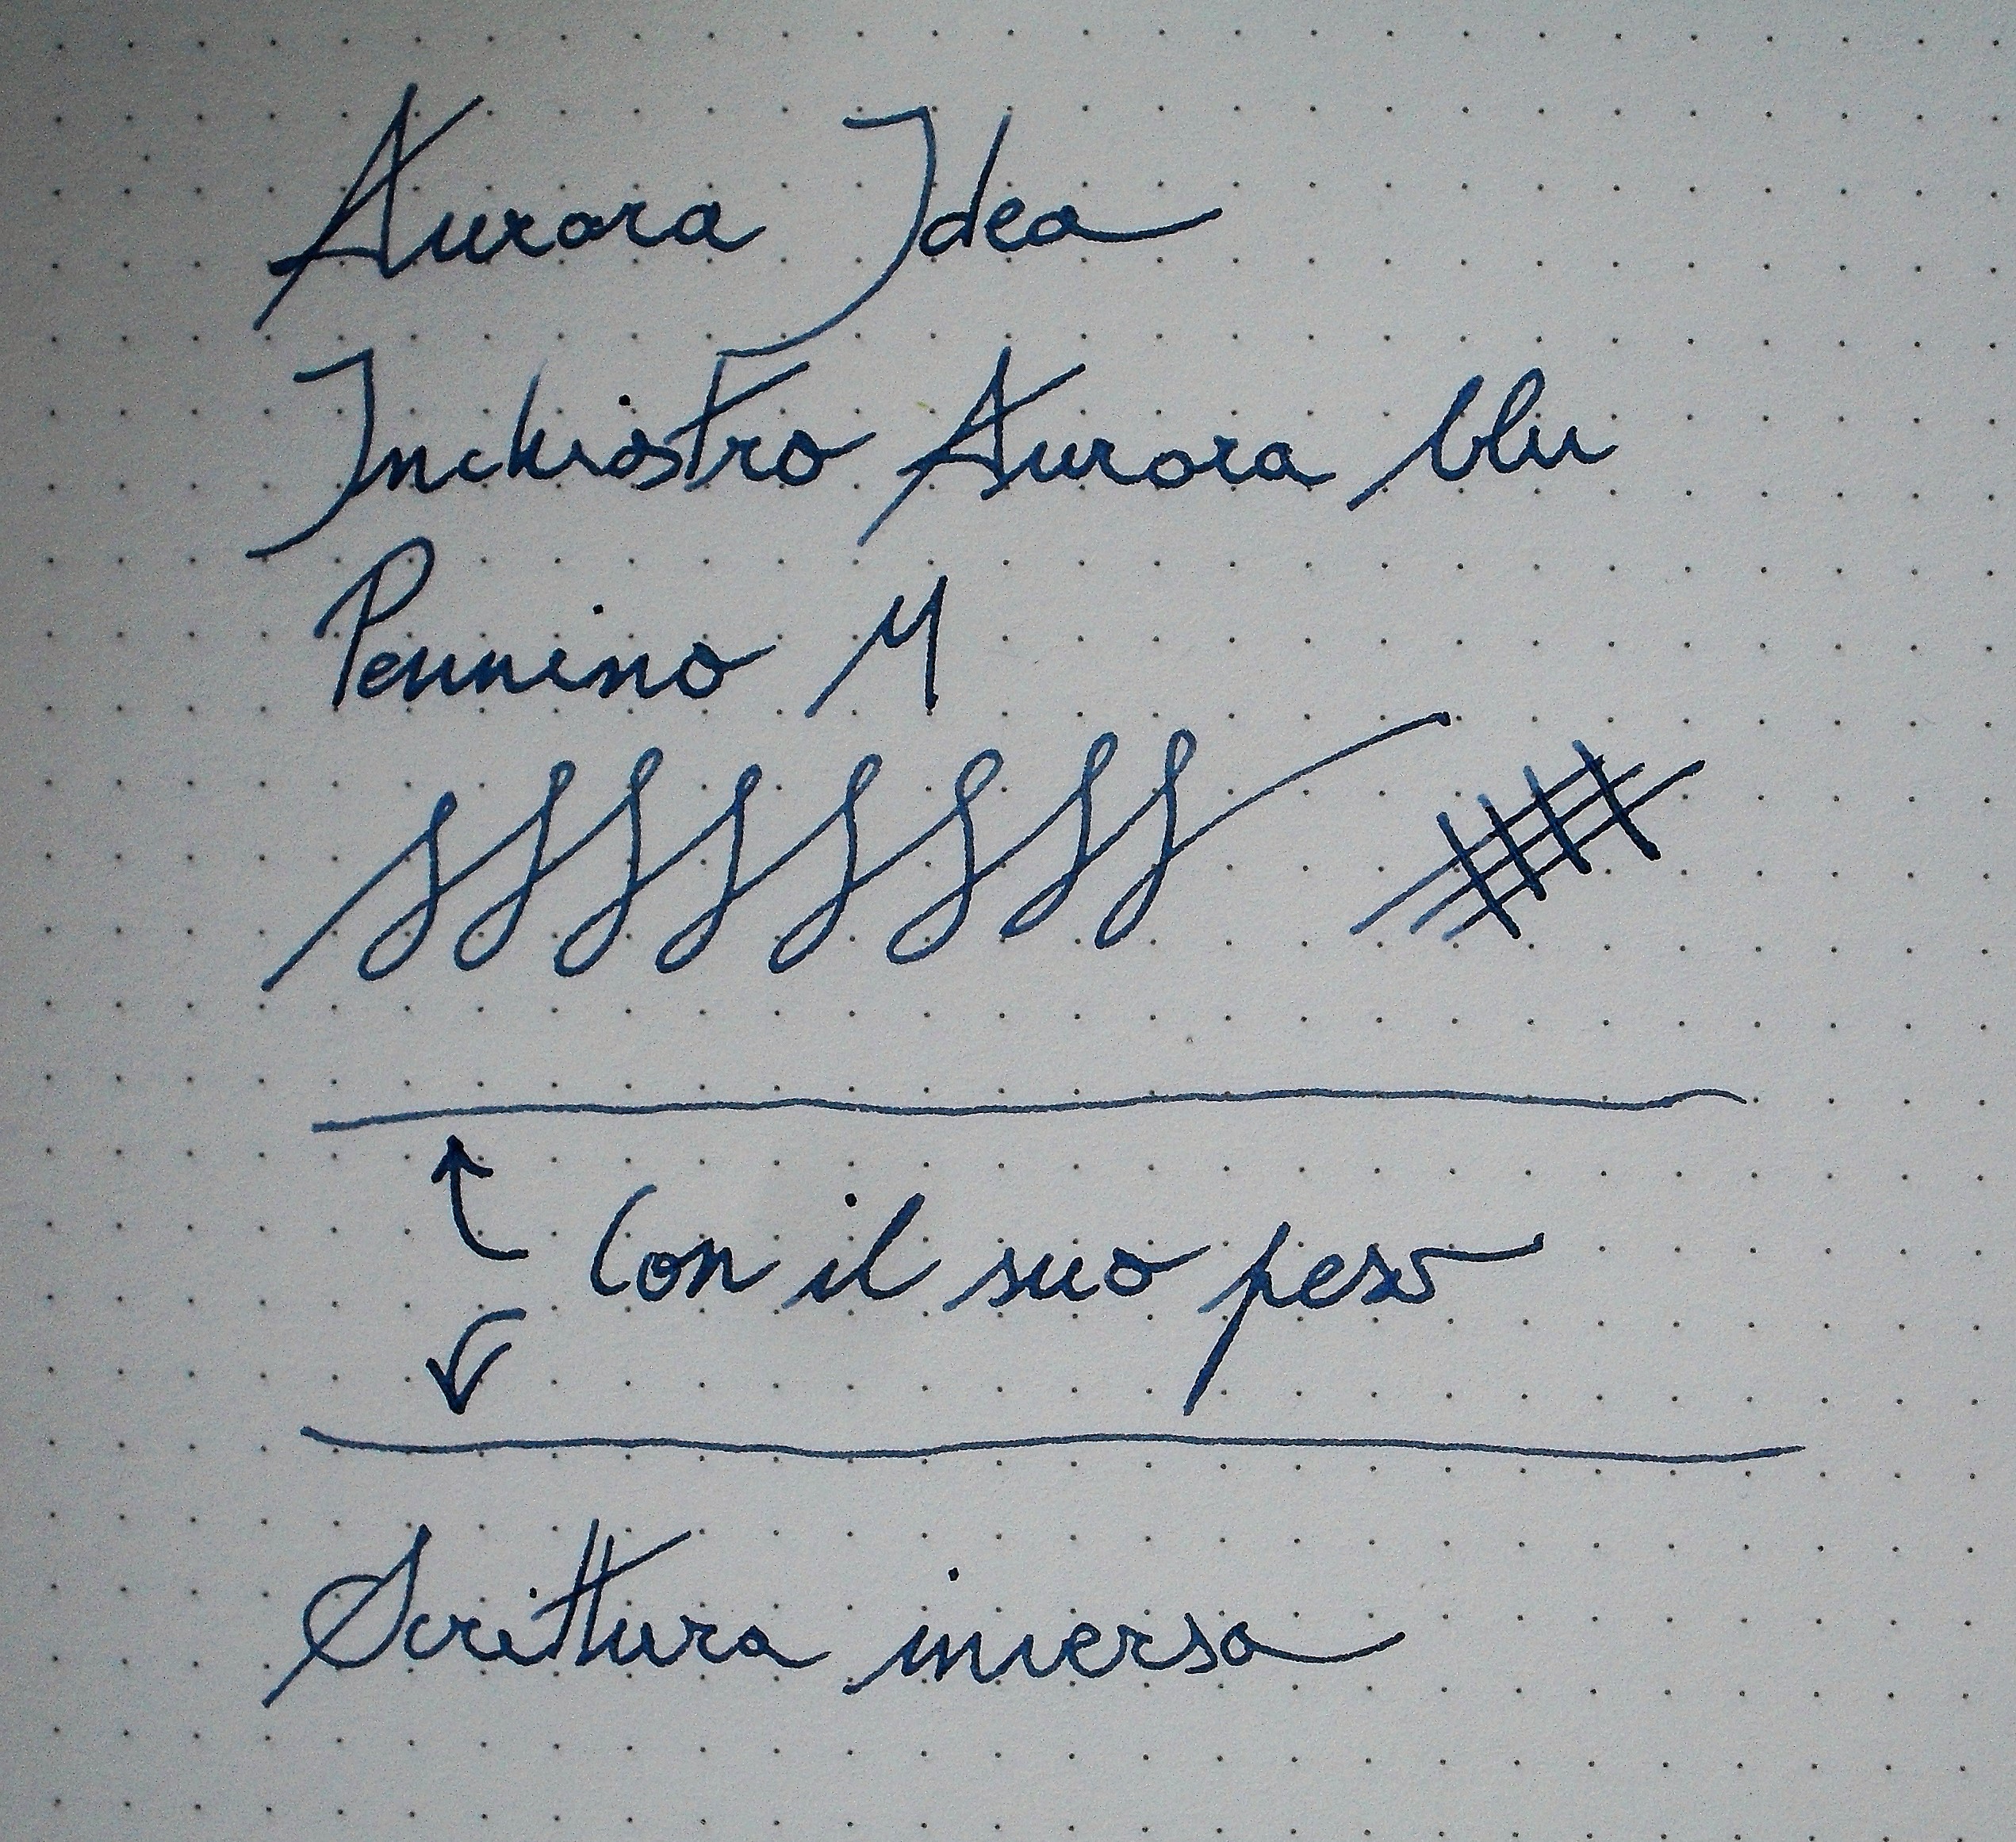 Aurora Idea
Inchiostro Aurora blu
Pennino M
Con il suo peso
Scrittura inversa